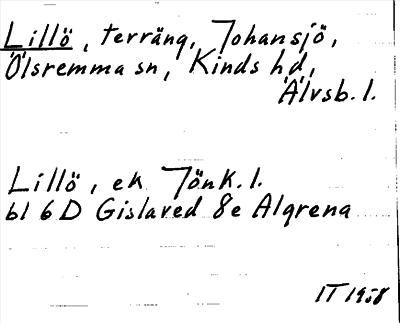 Lillö, terräng, Johansjö,
Ölsremma sn, Kinds hd,
Älvsb. l.
Lillö, ek Jönk. l.
bl 6D Gislaved 8e Algrena
IT 1958